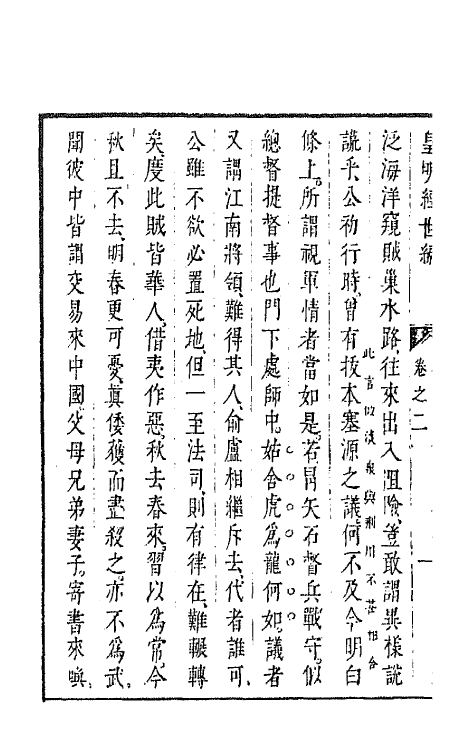 皇明經世編
卷之二
一
泛海洋窺賊巢水路往來出入沮險豈敢謂異樣說
譊乎公初行時曾有拔本塞源之議何不及今明白
此言似淡泉與荆川不甚相合
條上所謂視軍情者當如是若冐矢石督兵戰守似
總督提督事也門下處師中姑舍虎爲龍何如議者
又謂江南將領難得其人俞盧相繼斥去代者誰可
公雖不欲必置死地但一至法司則有律在難輾轉
矣度此賊皆華人借夷作惡秋去春來習以爲常今
秋且不去明春更可憂真倭獲而盡殺之亦不爲武
聞彼中皆謂交易來中國父母兄弟妻子寄書來喚